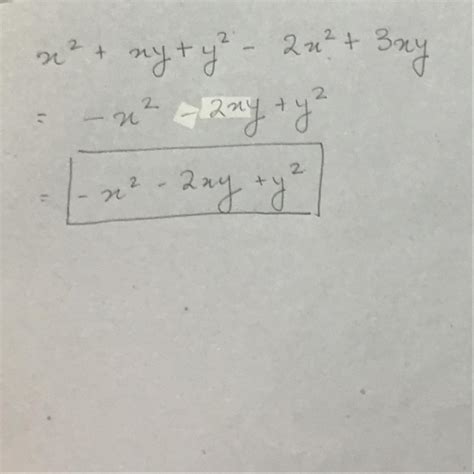 x² + xy + y² - 2x² + 3xy
= -x² - 2xy + y²
= -x² - 2xy + y²